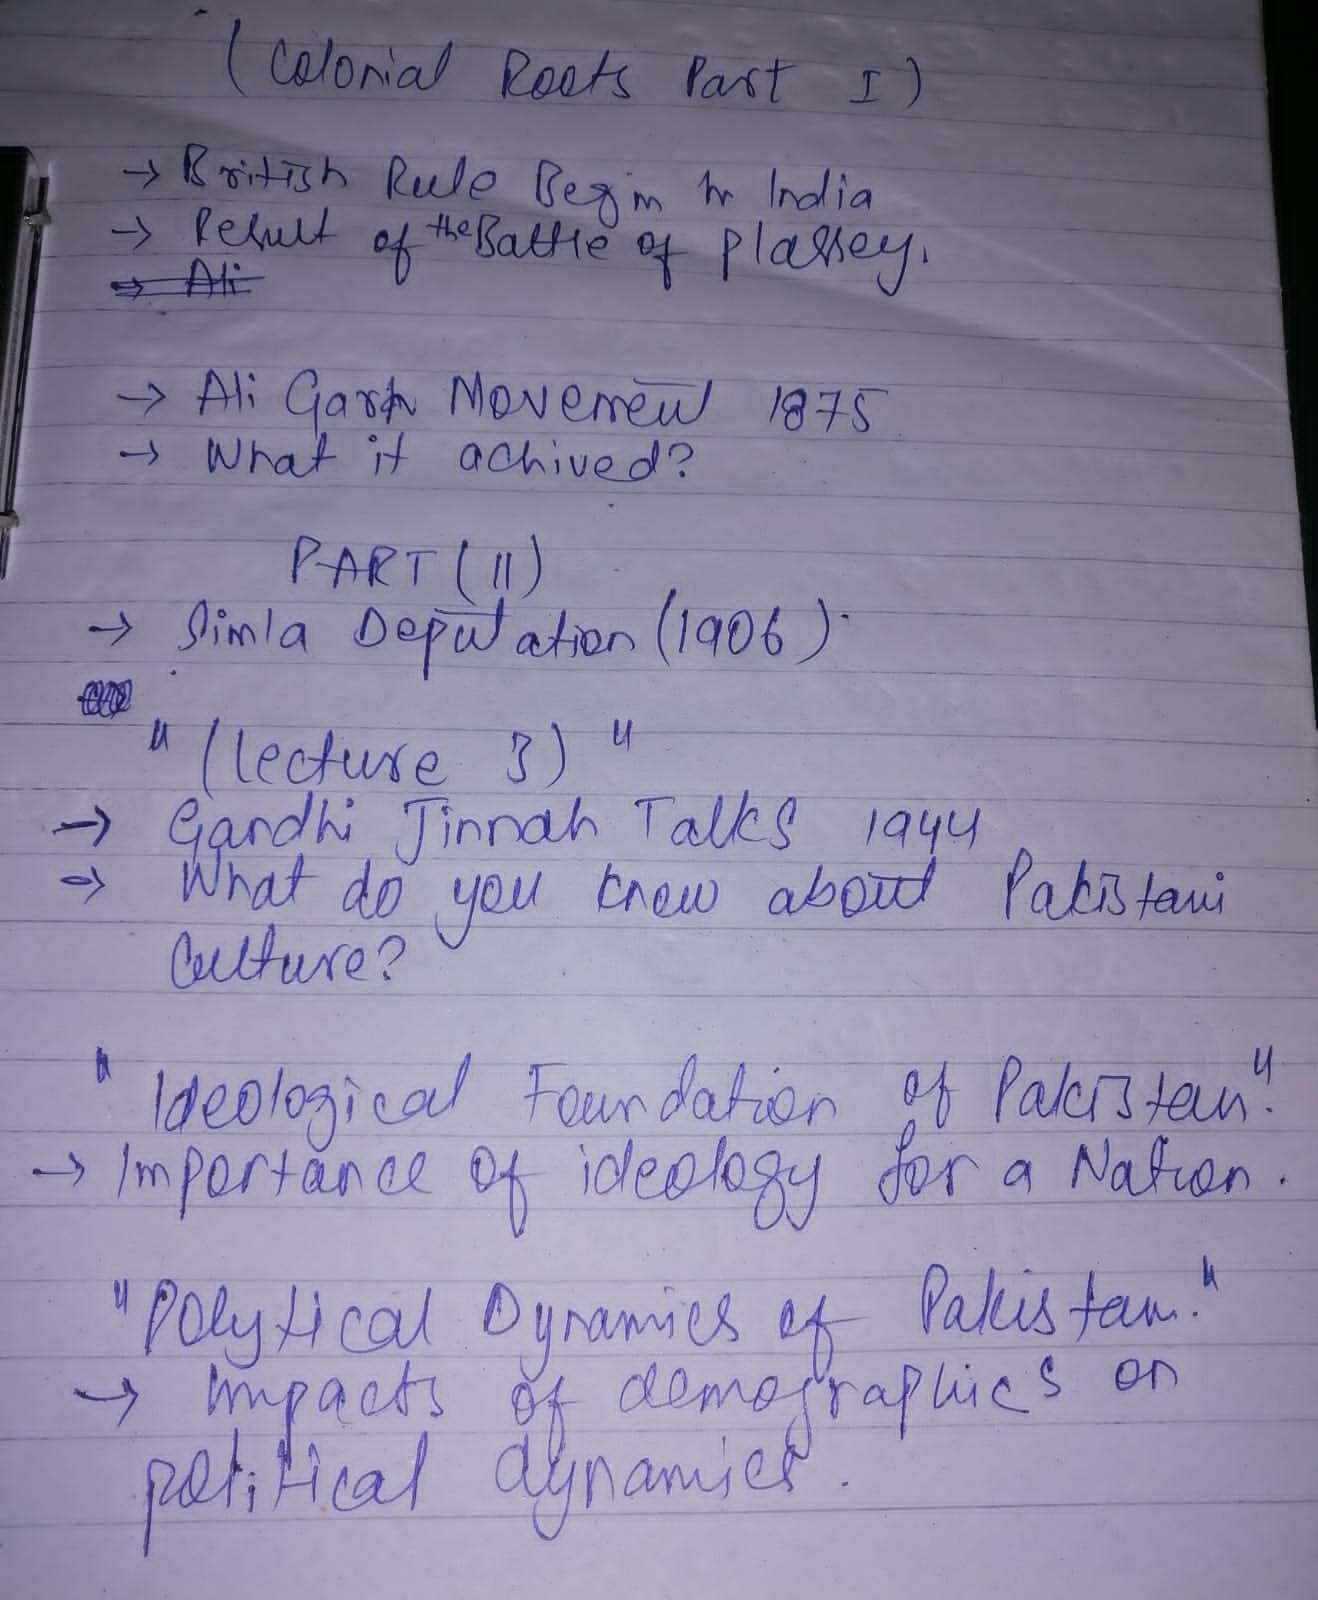 (Colonial Roots Part I)
→ British Rule Begin in India
→ Result of the Battle of Plassey.
→ Ali
→ Ali Garh Movement 1875
→ What it achived?
PART (II)
→ Simla Deputation (1906).
"(lecture 3)"
→ Gandhi Jinnah Talks 1944
→ What do you know about Pakistani
Culture?
"Ideological Foundation of Pakistan."
→ Importance of ideology for a Nation.
"Polytical Dynamics of Pakistan."
→ Impacts of demographics on
political dynamics.